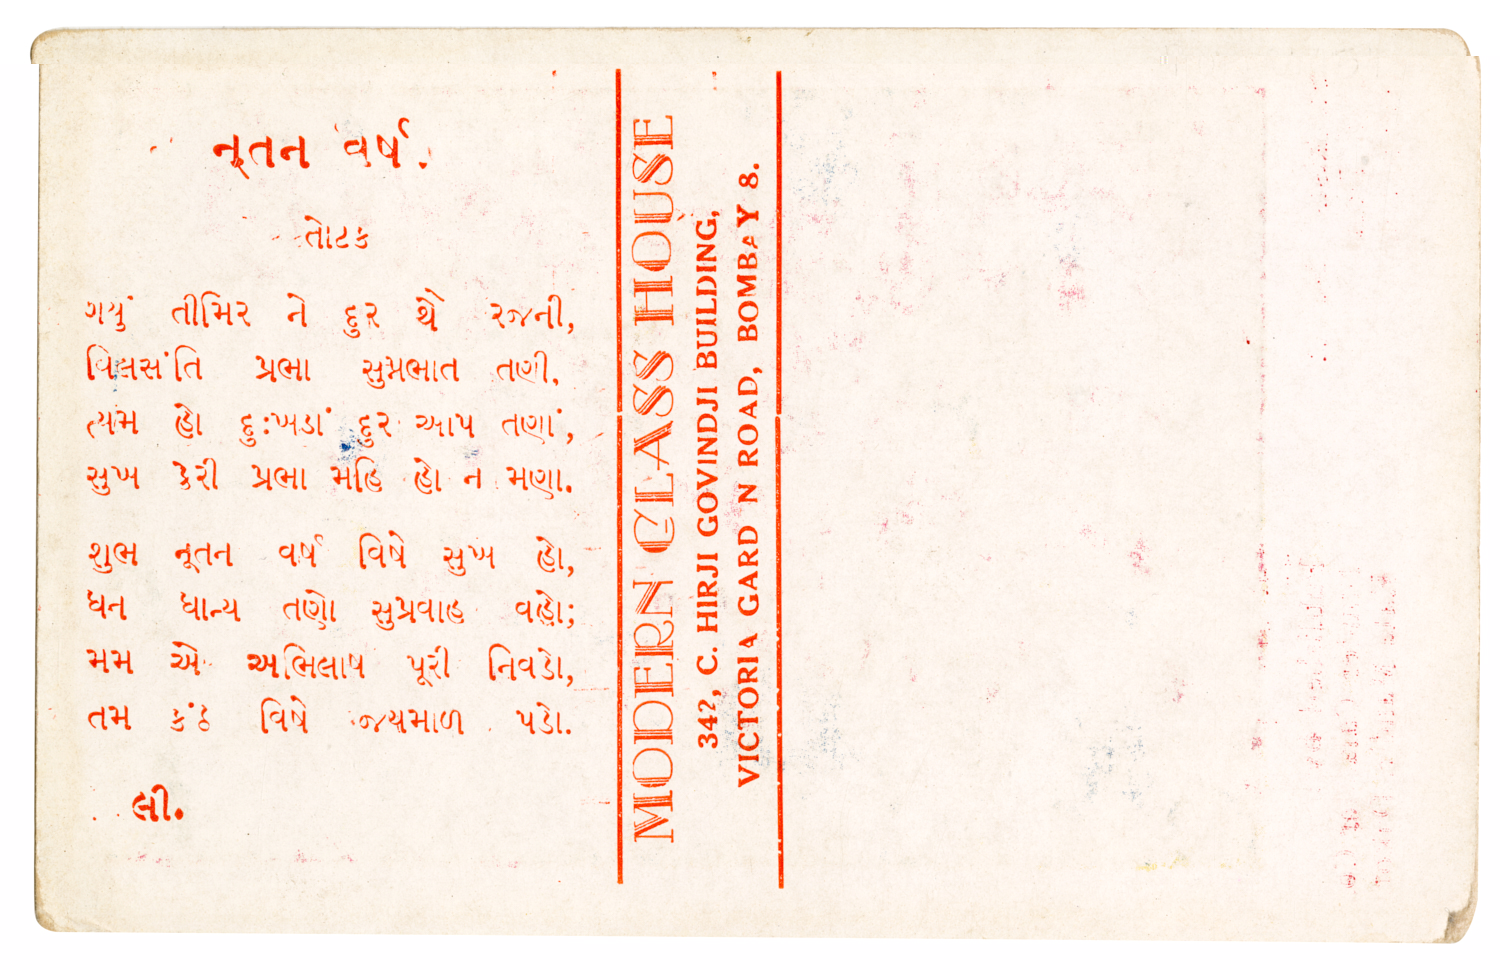 નૂતન વર્ષ.
તોટક
ગયું તીમિર ને દુર થૈ રજની,
વિલસંતિ પ્રભા સુપ્રભાત તણી,
ત્યમ હો દુઃખડાં દુર આપ તણાં,
સુખ કેરી પ્રભા મહિં હો ન મણા.
શુભ નૂતન વર્ષ વિષે સુખ હો,
ધન ધાન્ય તણો સુપ્રવાહ વહો;
મમ એ અભિલાષ પૂરી નિવડો,
તમ કંઠે વિષે જયમાળ પડો.
લી.
MODERN GLASS HOUSE
342, C. HIRJI GOVINDJI BUILDING,
VICTORIA GARD N ROAD, BOMBAY 8.